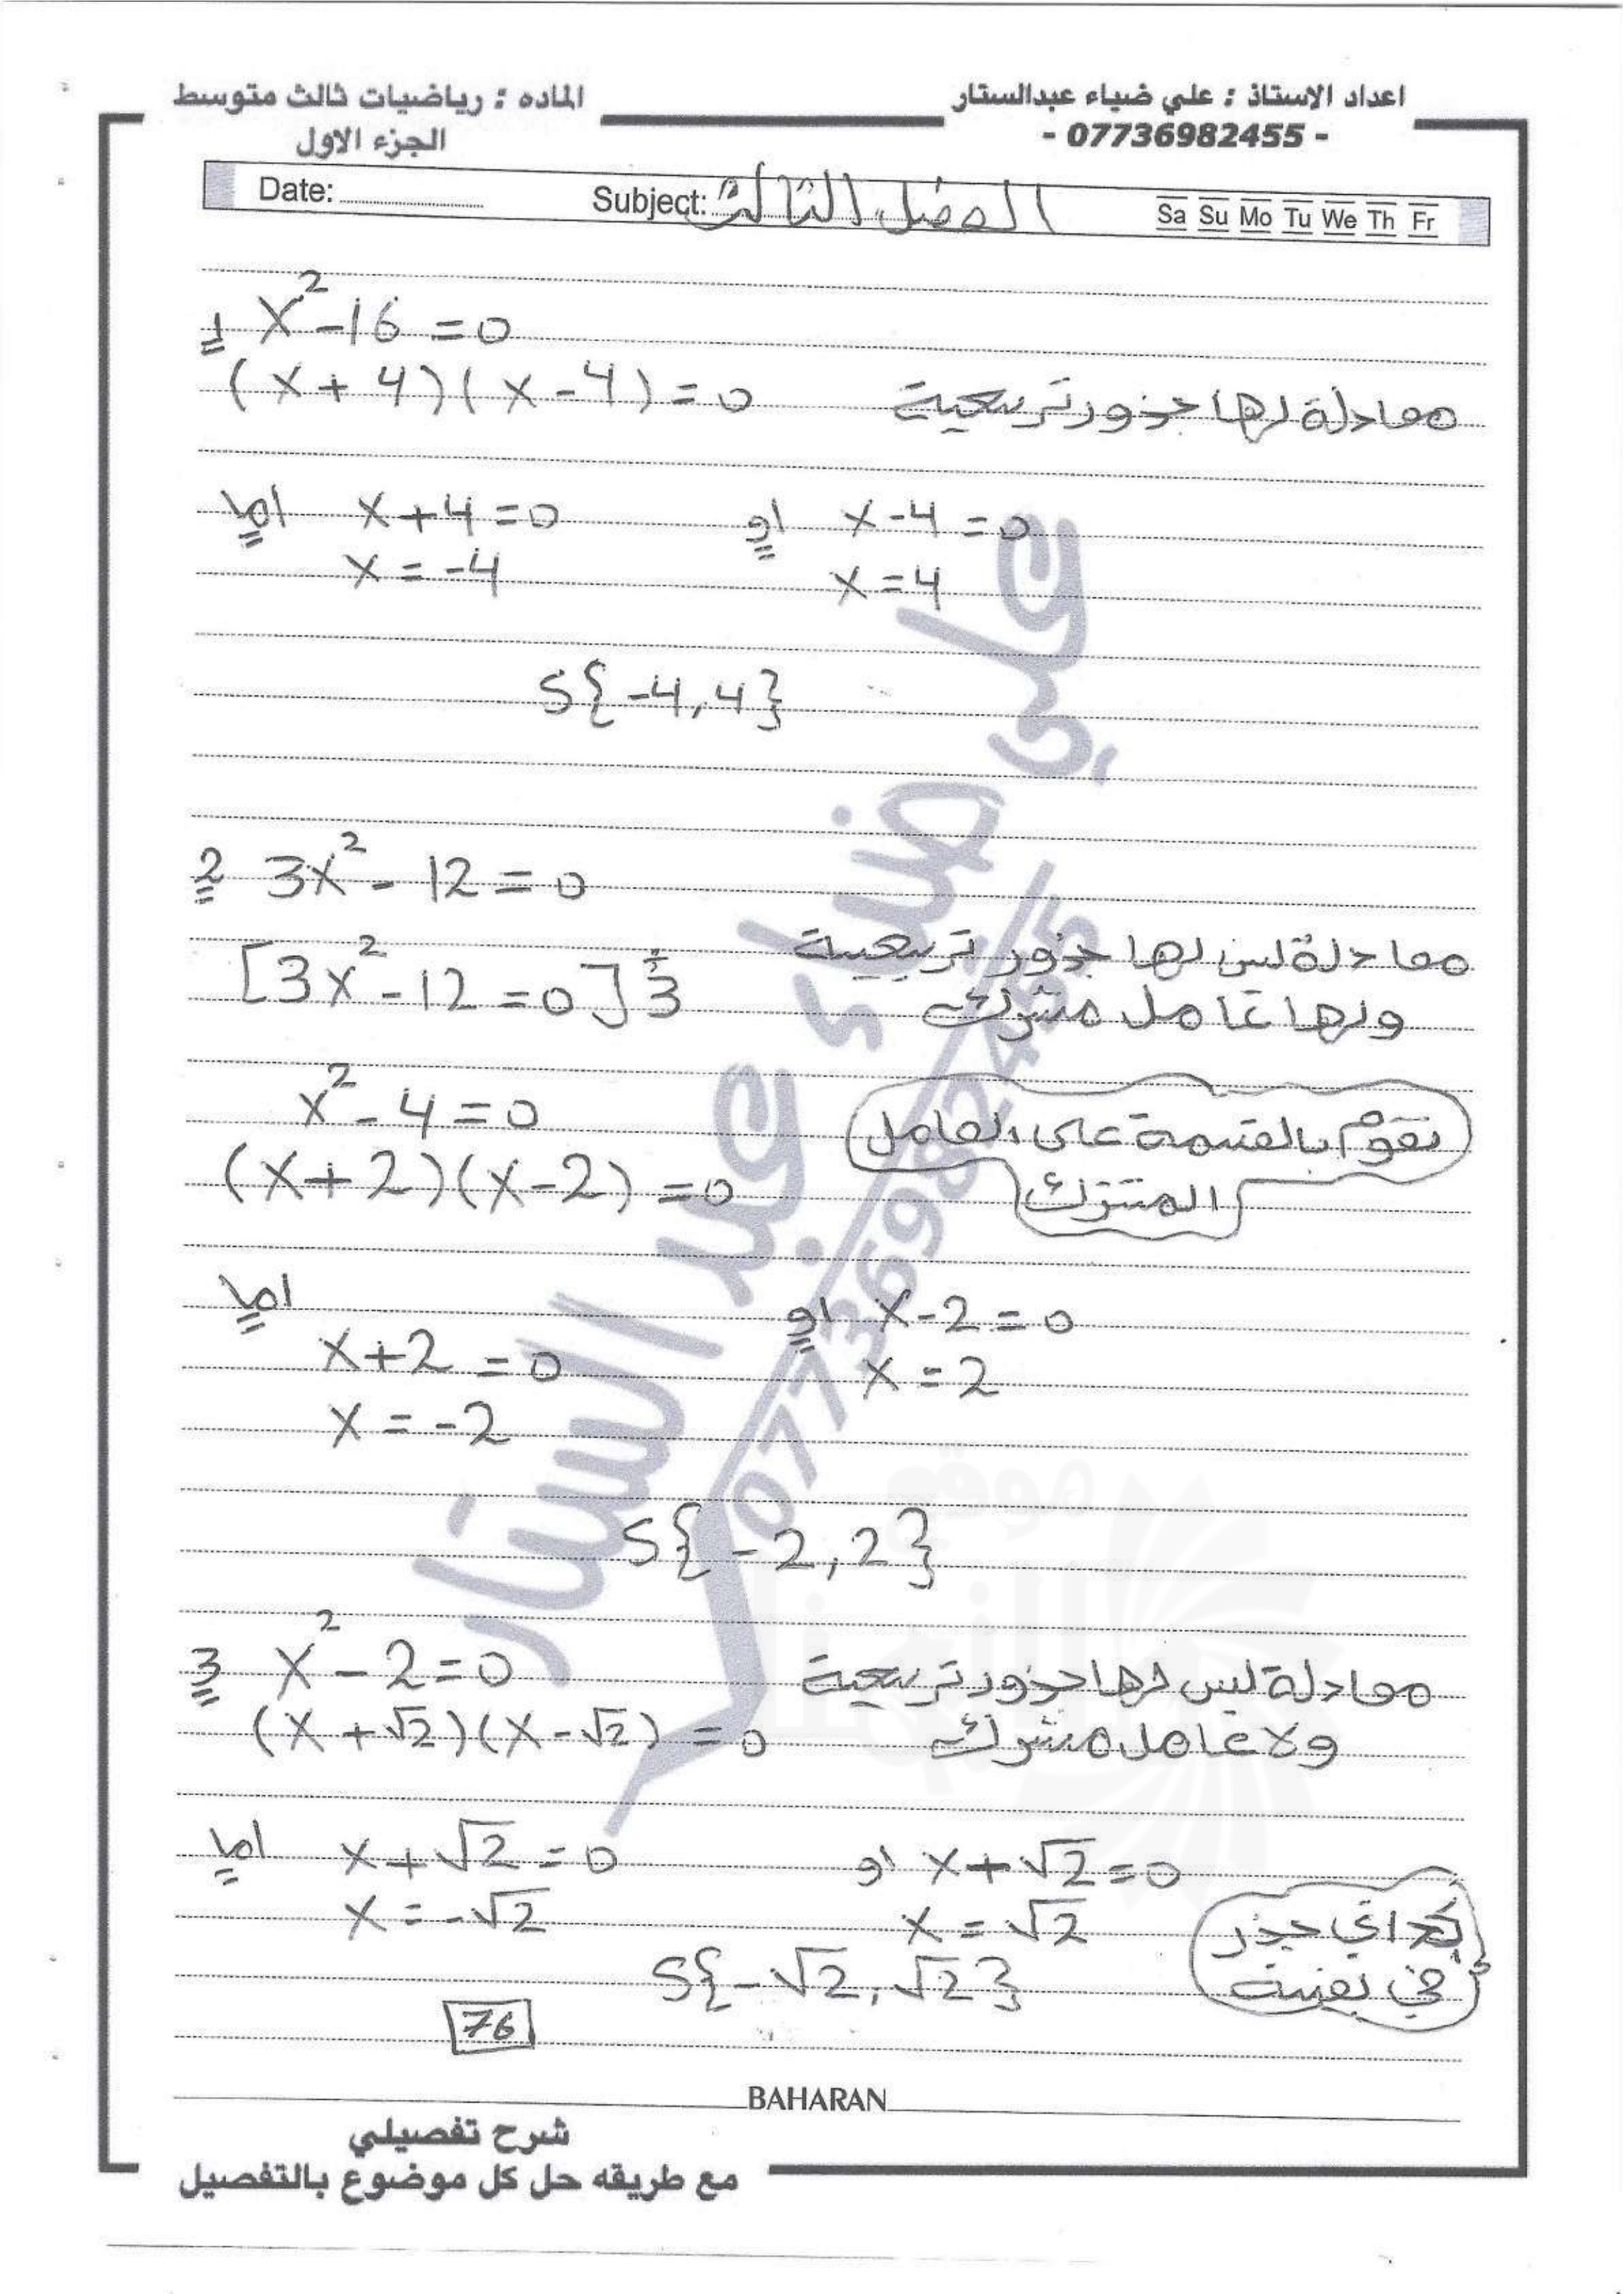 اعداد الاستاذ : علي ضياء عبدالستار
- 07736982455 -
الماده : رياضيات ثالث متوسط
الجزء الاول
Date: Subject: الفصل الثالث Sa Su Mo Tu We Th Fr
1 x²-16=0
(x+4)(x-4)=0 معادلة لها جذور تربيعية
اما x+4=0 او x-4=0
x=-4 x=4
S{-4,4}
2 3x²-12=0
[3x²-12=0]÷3 معادلة ليس لها جذور تربيعية
ولها عامل مشترك
x²-4=0 نقوم بالقسمة على العامل
(x+2)(x-2)=0 المشترك
اما x+2=0 او x-2=0
x=-2 x=2
S{-2,2}
3 x²-2=0 معادلة ليس لها جذور تربيعية
(x+√2)(x-√2)=0 ولا عامل مشترك
اما x+√2=0 او x+√2=0
x=-√2 x=√2
S{-√2,√2}
جذر
في نفسة
76
BAHARAN
شرح تفصيلي
مع طريقه حل كل موضوع بالتفصيل
علي ضياء عبد الستار
07736982455
موقع